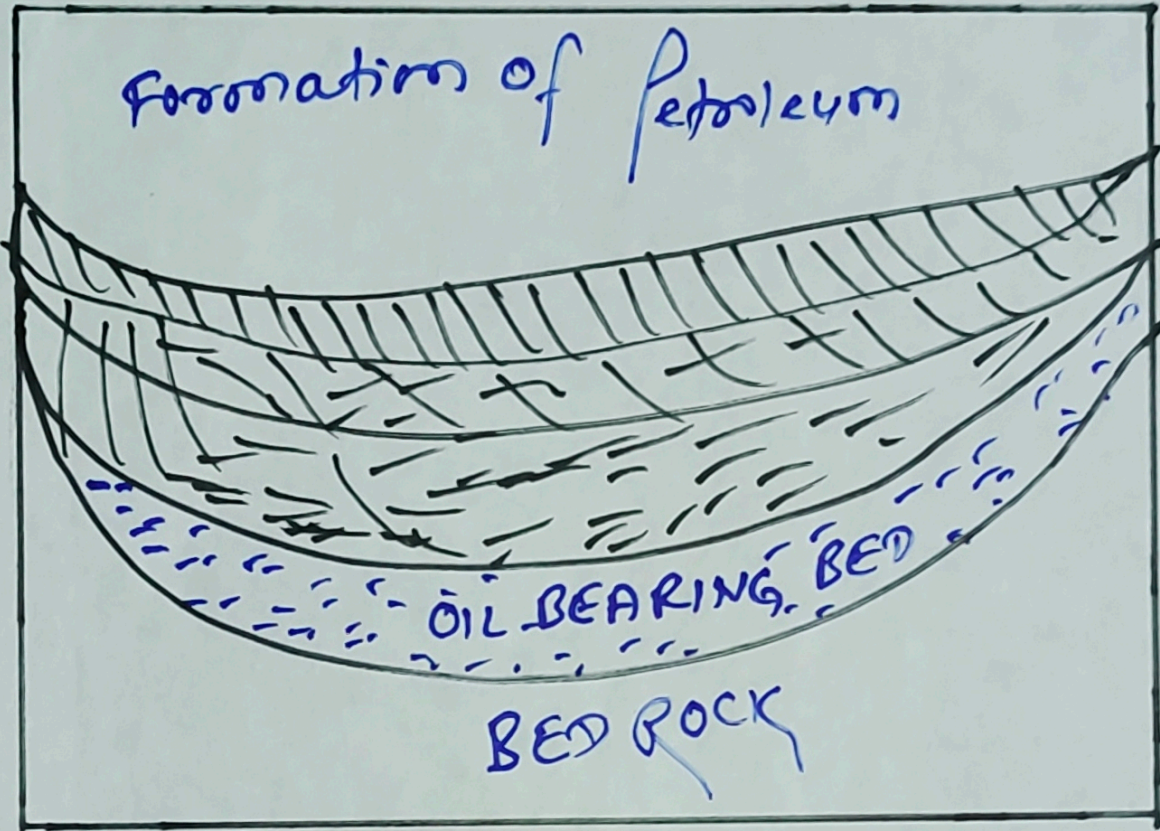 Formation of Petroleum
OIL BEARING BED
BED ROCK